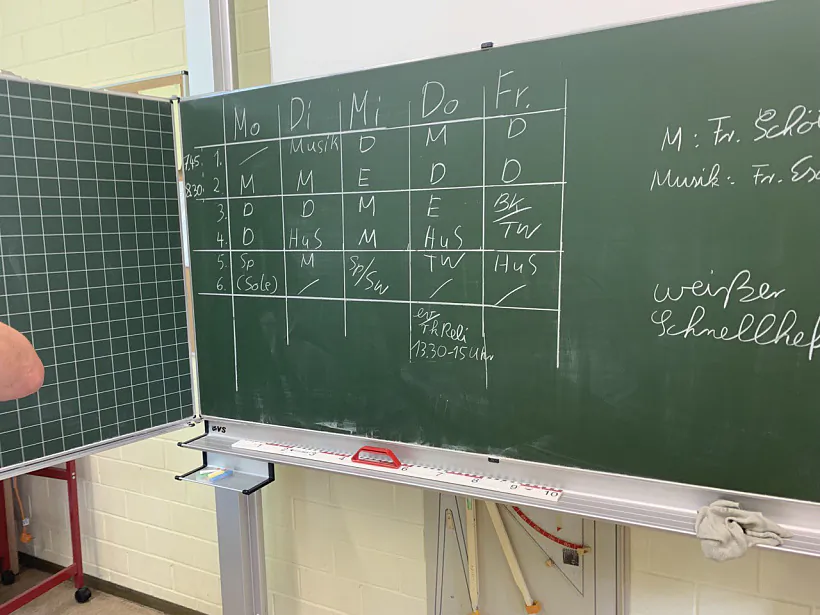 Mo Di Mi Do Fr.
7.45 1. / Musik D M D
8.30 2. M M E D D
3. D D M E BK/
4. D HuS M HuS TW
5. Sp M Sp/ TW HuS
6. (Sole) / Sw / /
ev/
Th Reli
13.30-15 Uhr
M: Fr. Schö
Musik: Fr. Es
weißer
Schnellhef
VS
1 2 3 4 5 6 7 8 9 10